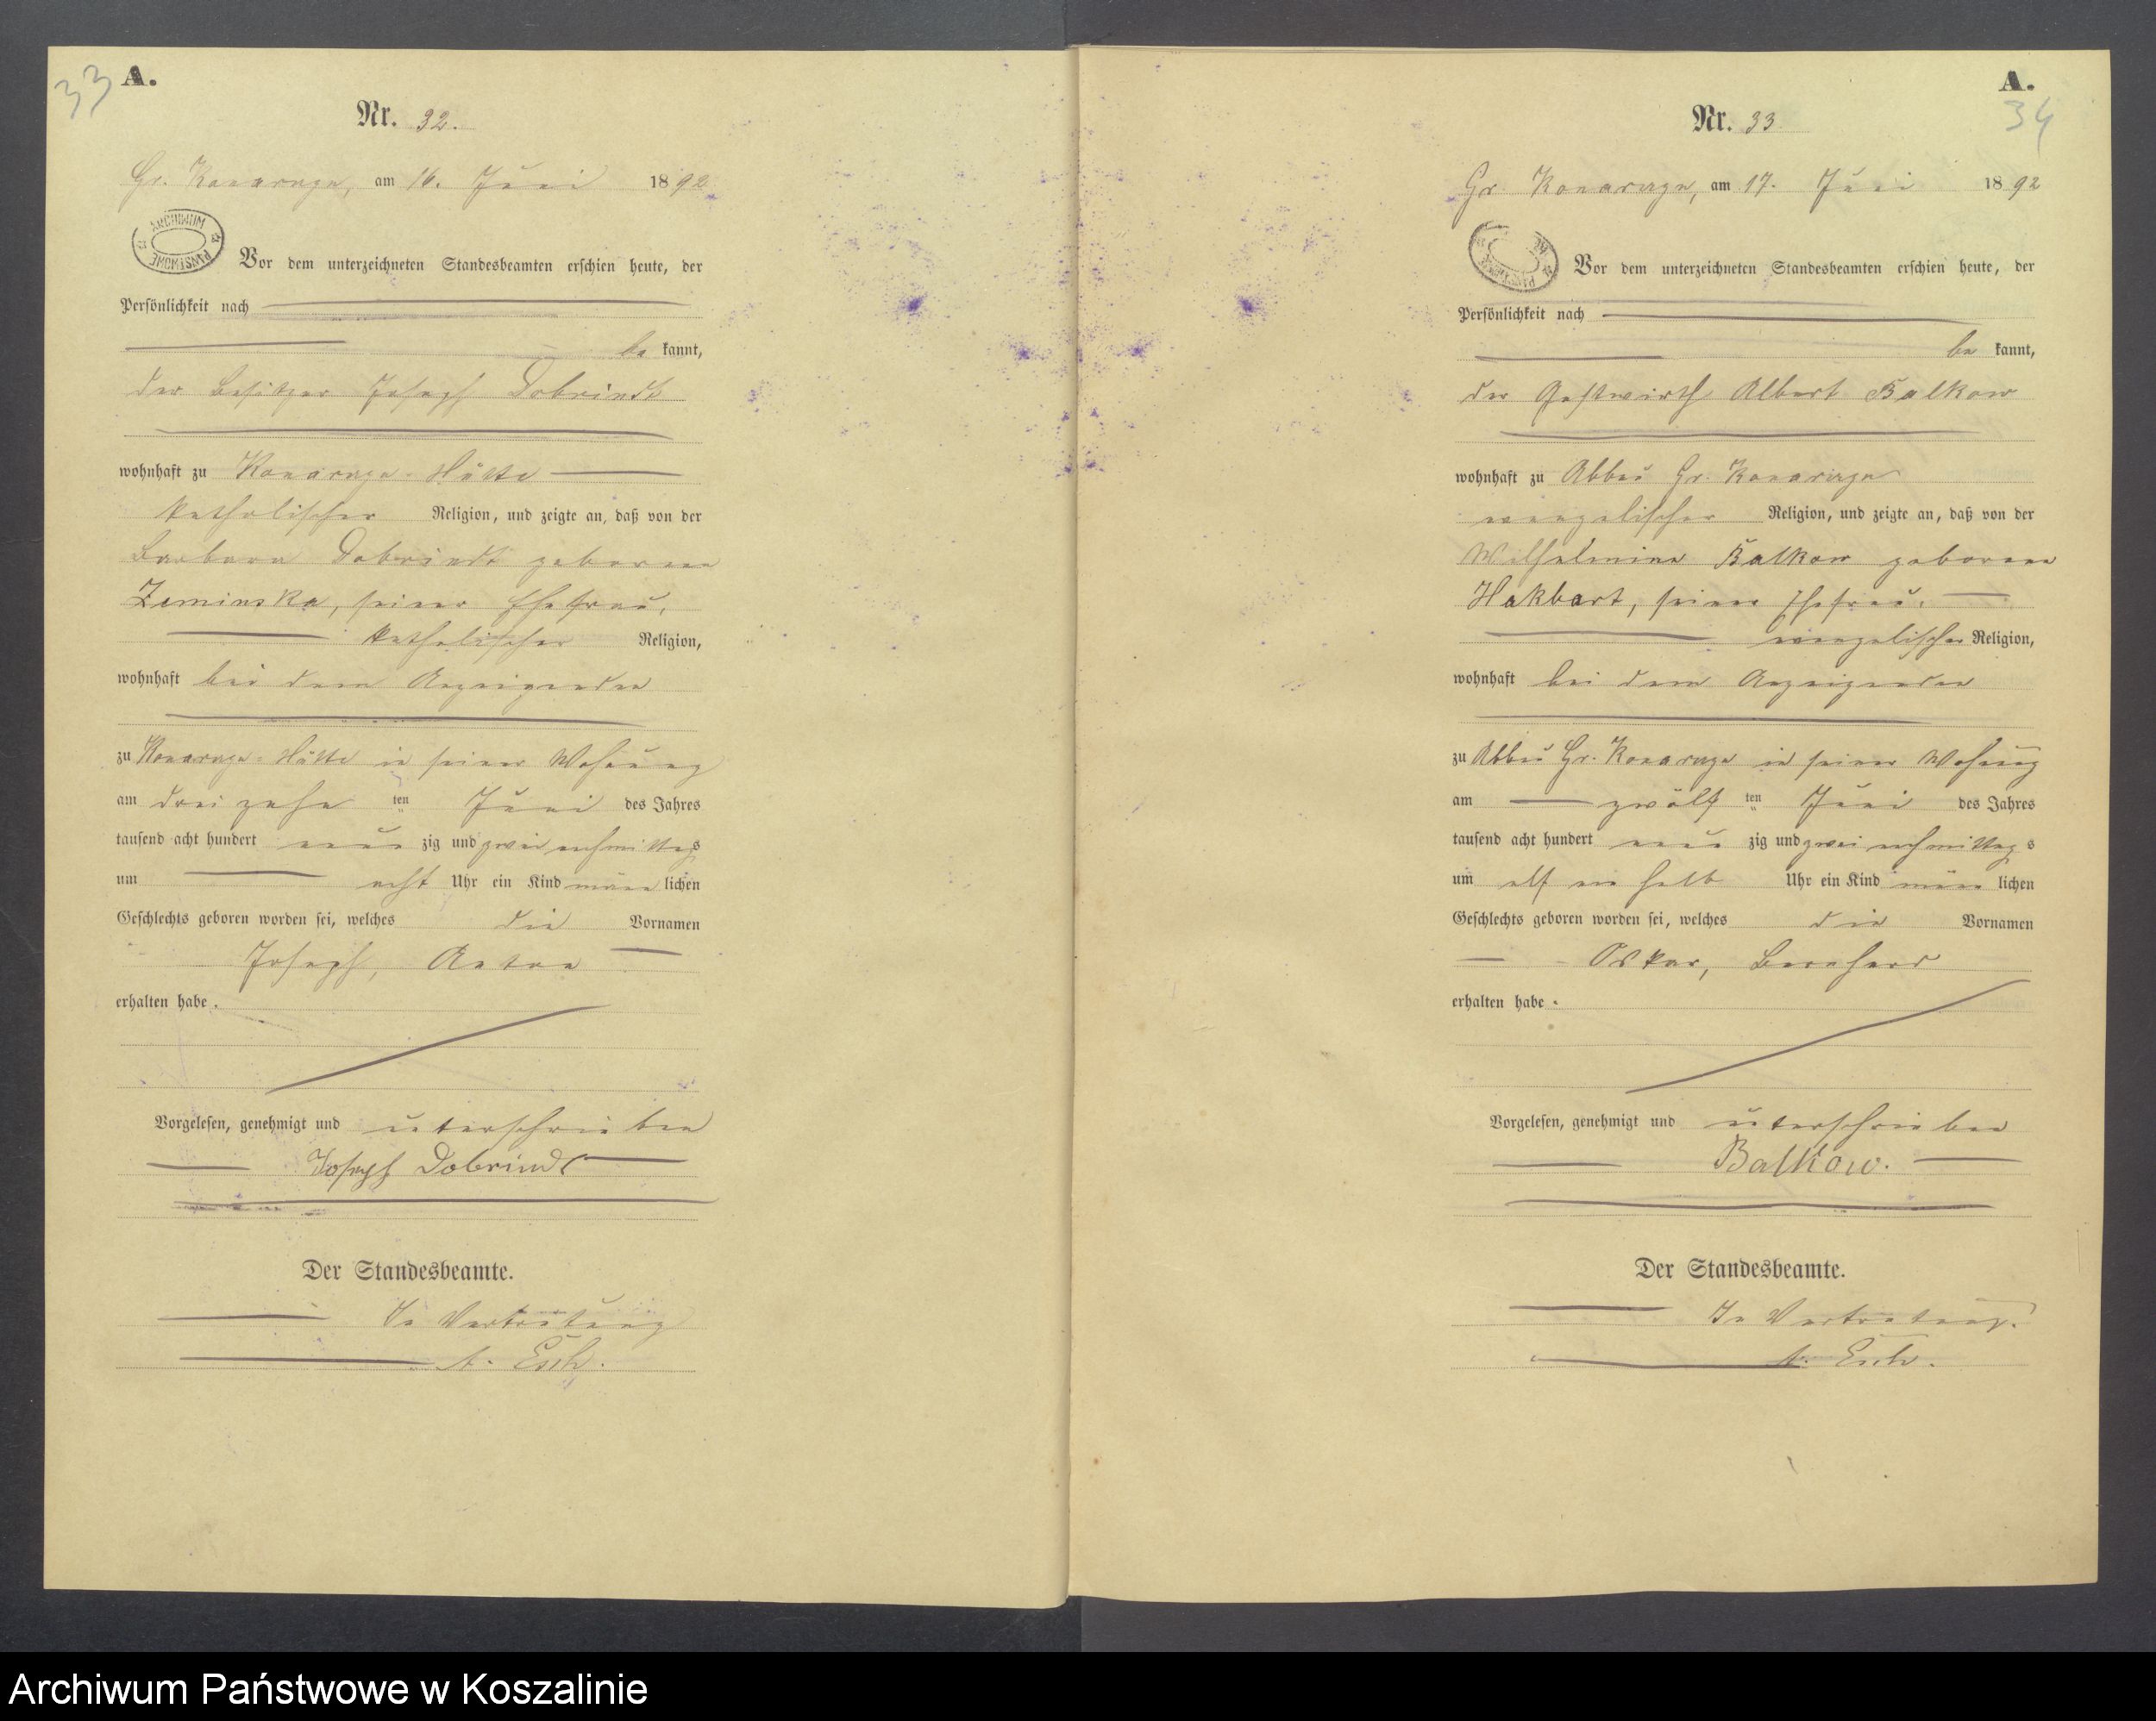 33
A.
Nr. 32.
Gr. Konarzyn, am 16. Juni 1892
ARCHIWUM PAŃSTWOWE
Vor dem unterzeichneten Standesbeamten erschien heute, der
Persönlichkeit nach
be kannt,
der Besitzer Joseph Dobrindt
wohnhaft zu Konarzyn-Hütte
katholischer Religion, und zeigte an, daß von der
Barbara Dobrindt geborenen
Zeminska, seiner Ehefrau,
katholischer Religion,
wohnhaft bei dem Anzeigenden
zu Konarzyn-Hütte in seiner Wohnung
am dreizehn ten Juni des Jahres
tausend acht hundert neun zig und zwei nachmittags
um acht Uhr ein Kind männ lichen
Geschlechts geboren worden sei, welches die Vornamen
Joseph, Anton
erhalten habe.
Vorgelesen, genehmigt und unterschrieben
Joseph Dobrindt
Der Standesbeamte.
In Vertretung
A. Esch.
A.
34
Nr. 33
Gr. Konarzyn, am 17. Juni 1892
Vor dem unterzeichneten Standesbeamten erschien heute, der
Persönlichkeit nach
be kannt,
der Gastwirth Albert Balkow
wohnhaft zu Abbau Gr. Konarzyn
evangelischer Religion, und zeigte an, daß von der
Wilhelmine Balkow geborenen
Hakbart, seiner Ehefrau,
evangelischer Religion,
wohnhaft bei dem Anzeigenden
zu Abbau Gr. Konarzyn in seiner Wohnung
am zwölf ten Juni des Jahres
tausend acht hundert neun zig und zwei nachmittag s
um elf ein halb Uhr ein Kind männ lichen
Geschlechts geboren worden sei, welches die Vornamen
Oskar, Bernhard
erhalten habe.
Vorgelesen, genehmigt und unterschrieben
Balkow.
Der Standesbeamte.
In Vertretung.
A. Esch.
Archiwum Państwowe w Koszalinie